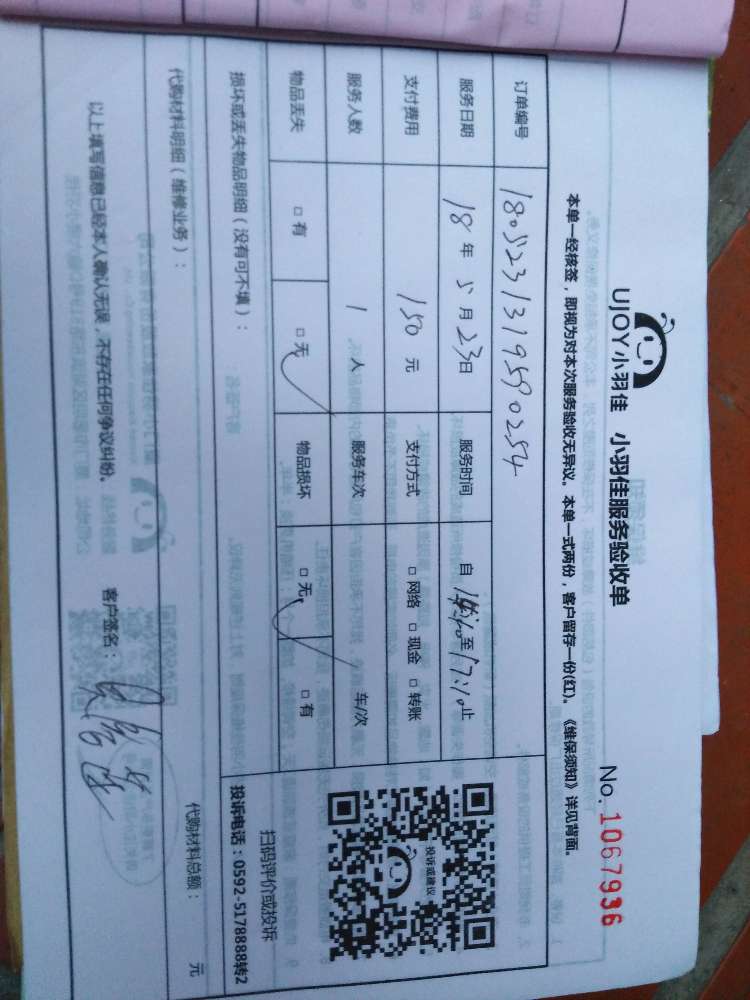 UJOY小羽佳 小羽佳服务验收单
No. 1067936
本单一经核签，即视为对本次服务验收无异议。本单一式两份，客户留存一份(红)。《维保须知》详见背面。
订单编号 180523131959 0254
服务日期 18 年 5 月 23 日 服务时间 自 至 17:10 止
支付费用 150 元 支付方式 □ 网络 □ 现金 □ 转账
服务人数 1 人 服务车次 车/次
物品丢失 □ 有 □ 无 物品损坏 □ 无 □ 有
损坏或丢失物品明细（没有可不填）：
投诉或建议
扫码评价或投诉
投诉电话：0592-5178888转2
代购材料明细（维修业务）： 代购材料总额： 元
以上填写信息已经本人确认无误，不存在任何争议纠纷。 客户签名：